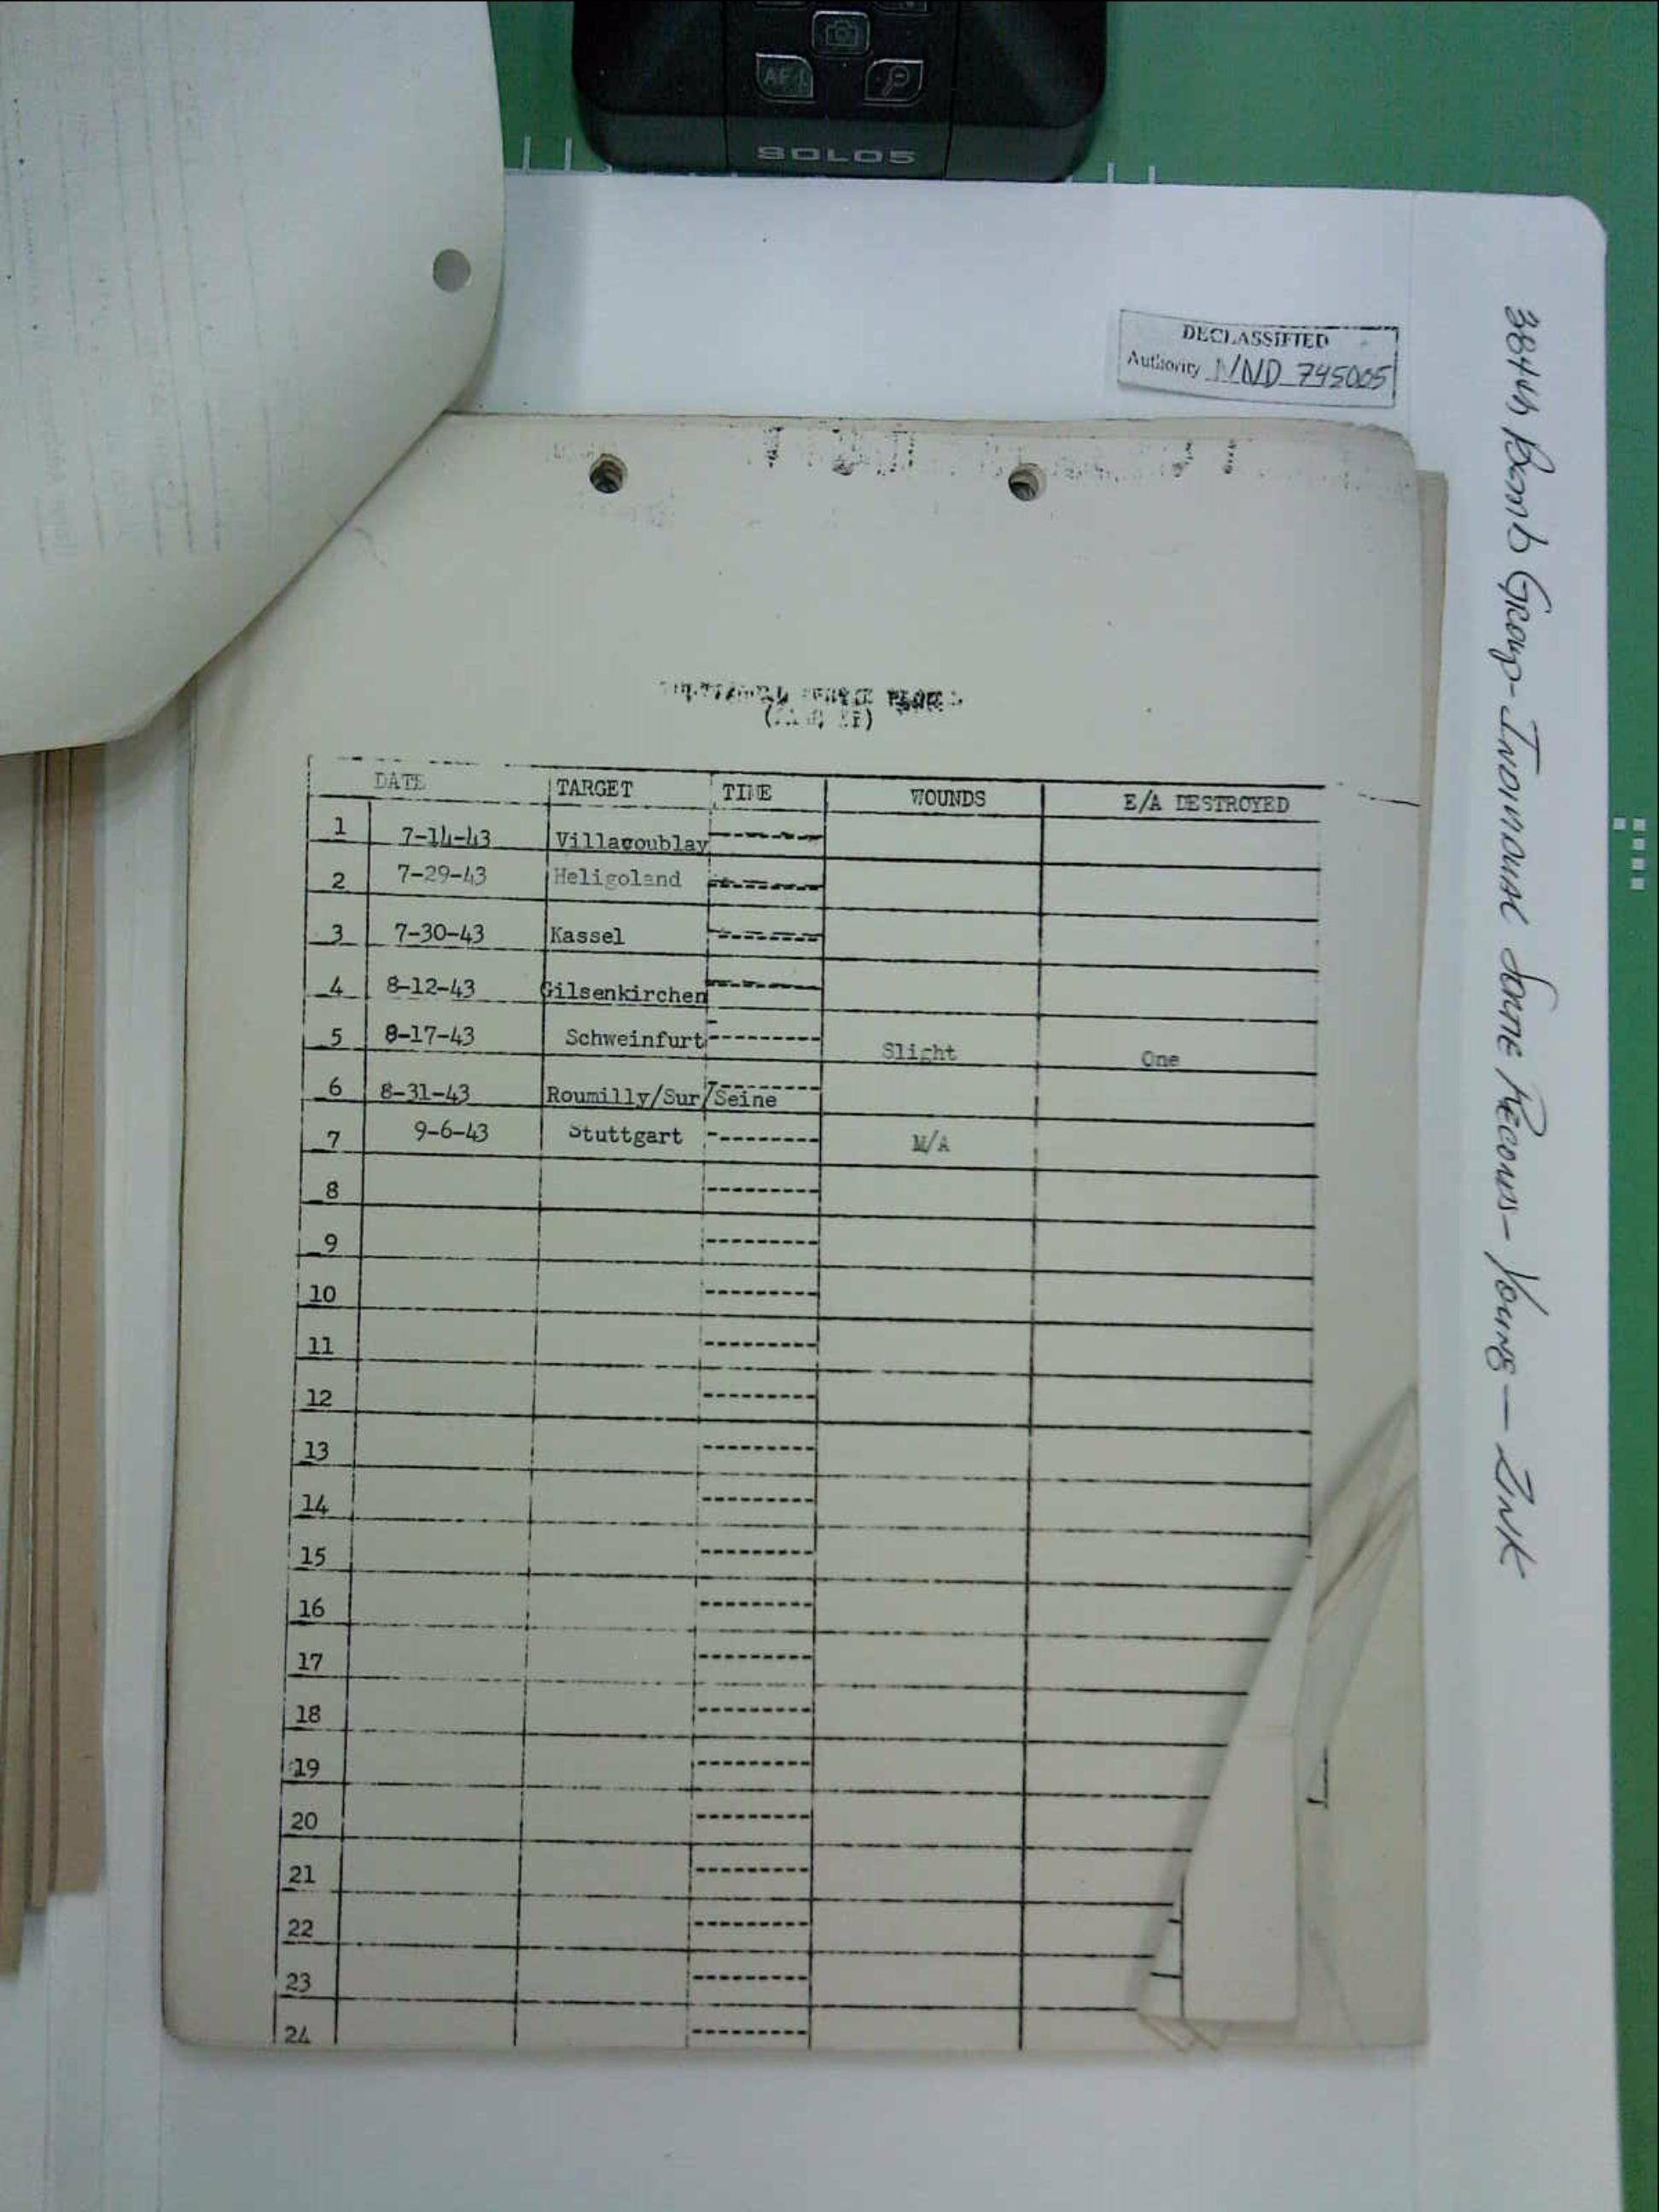 AF
SOLO5
DECLASSIFIED
Authority NND 745005
384th Bomb Group - Individual Sortie Records - Young - Zink
DATE TARGET TIME WOUNDS E/A DESTROYED
1 7-14-43 Villacoublay
2 7-29-43 Heligoland
3 7-30-43 Kassel
4 8-12-43 Gilsenkirchen
5 8-17-43 Schweinfurt Slight One
6 8-31-43 Roumilly/Sur/Seine
7 9-6-43 Stuttgart M/A
8
9
10
11
12
13
14
15
16
17
18
19
20
21
22
23
24